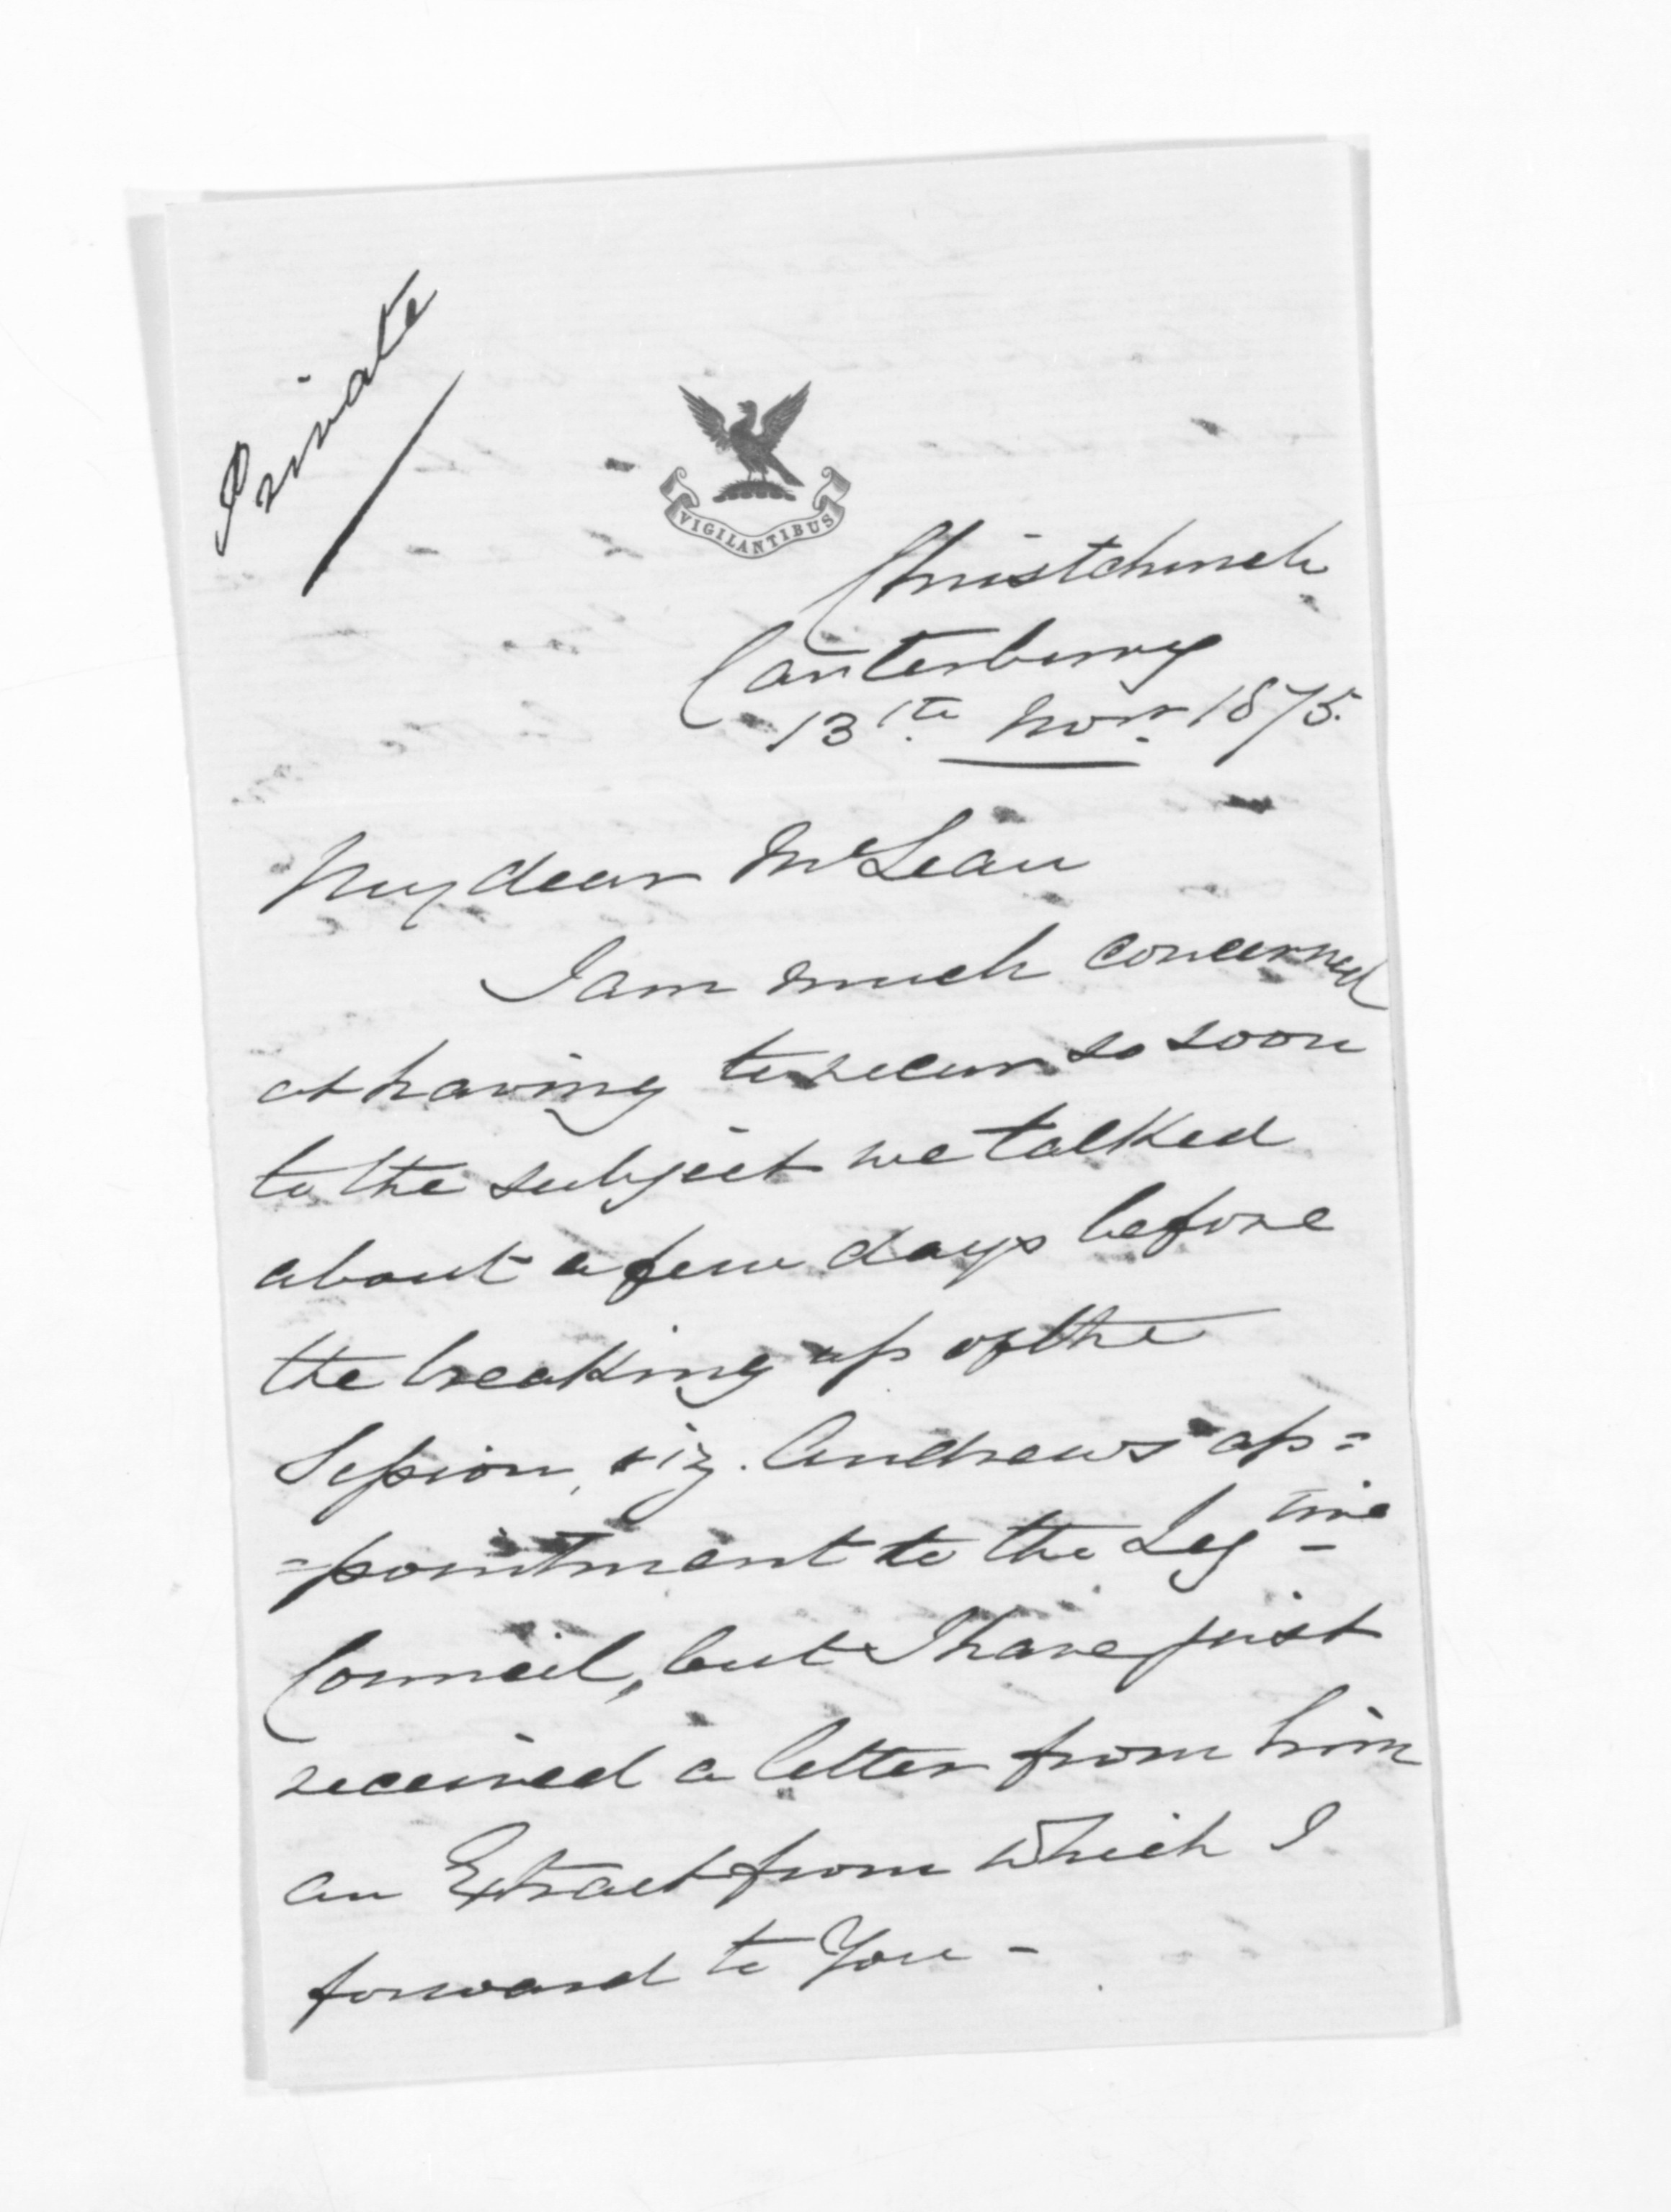 Private
VIGILANTIBUS
Christchurch
Canterbury
13th Novr. 1875.
My dear McLean
I am much concerned
at having to recur so soon
to the subject we talked
about a few days before
the breaking up of the
Session, viz. Andrews' ap=
=pointment to the Legtive
Council, but I have just
received a letter from him
an Extract from which I
forward to You -